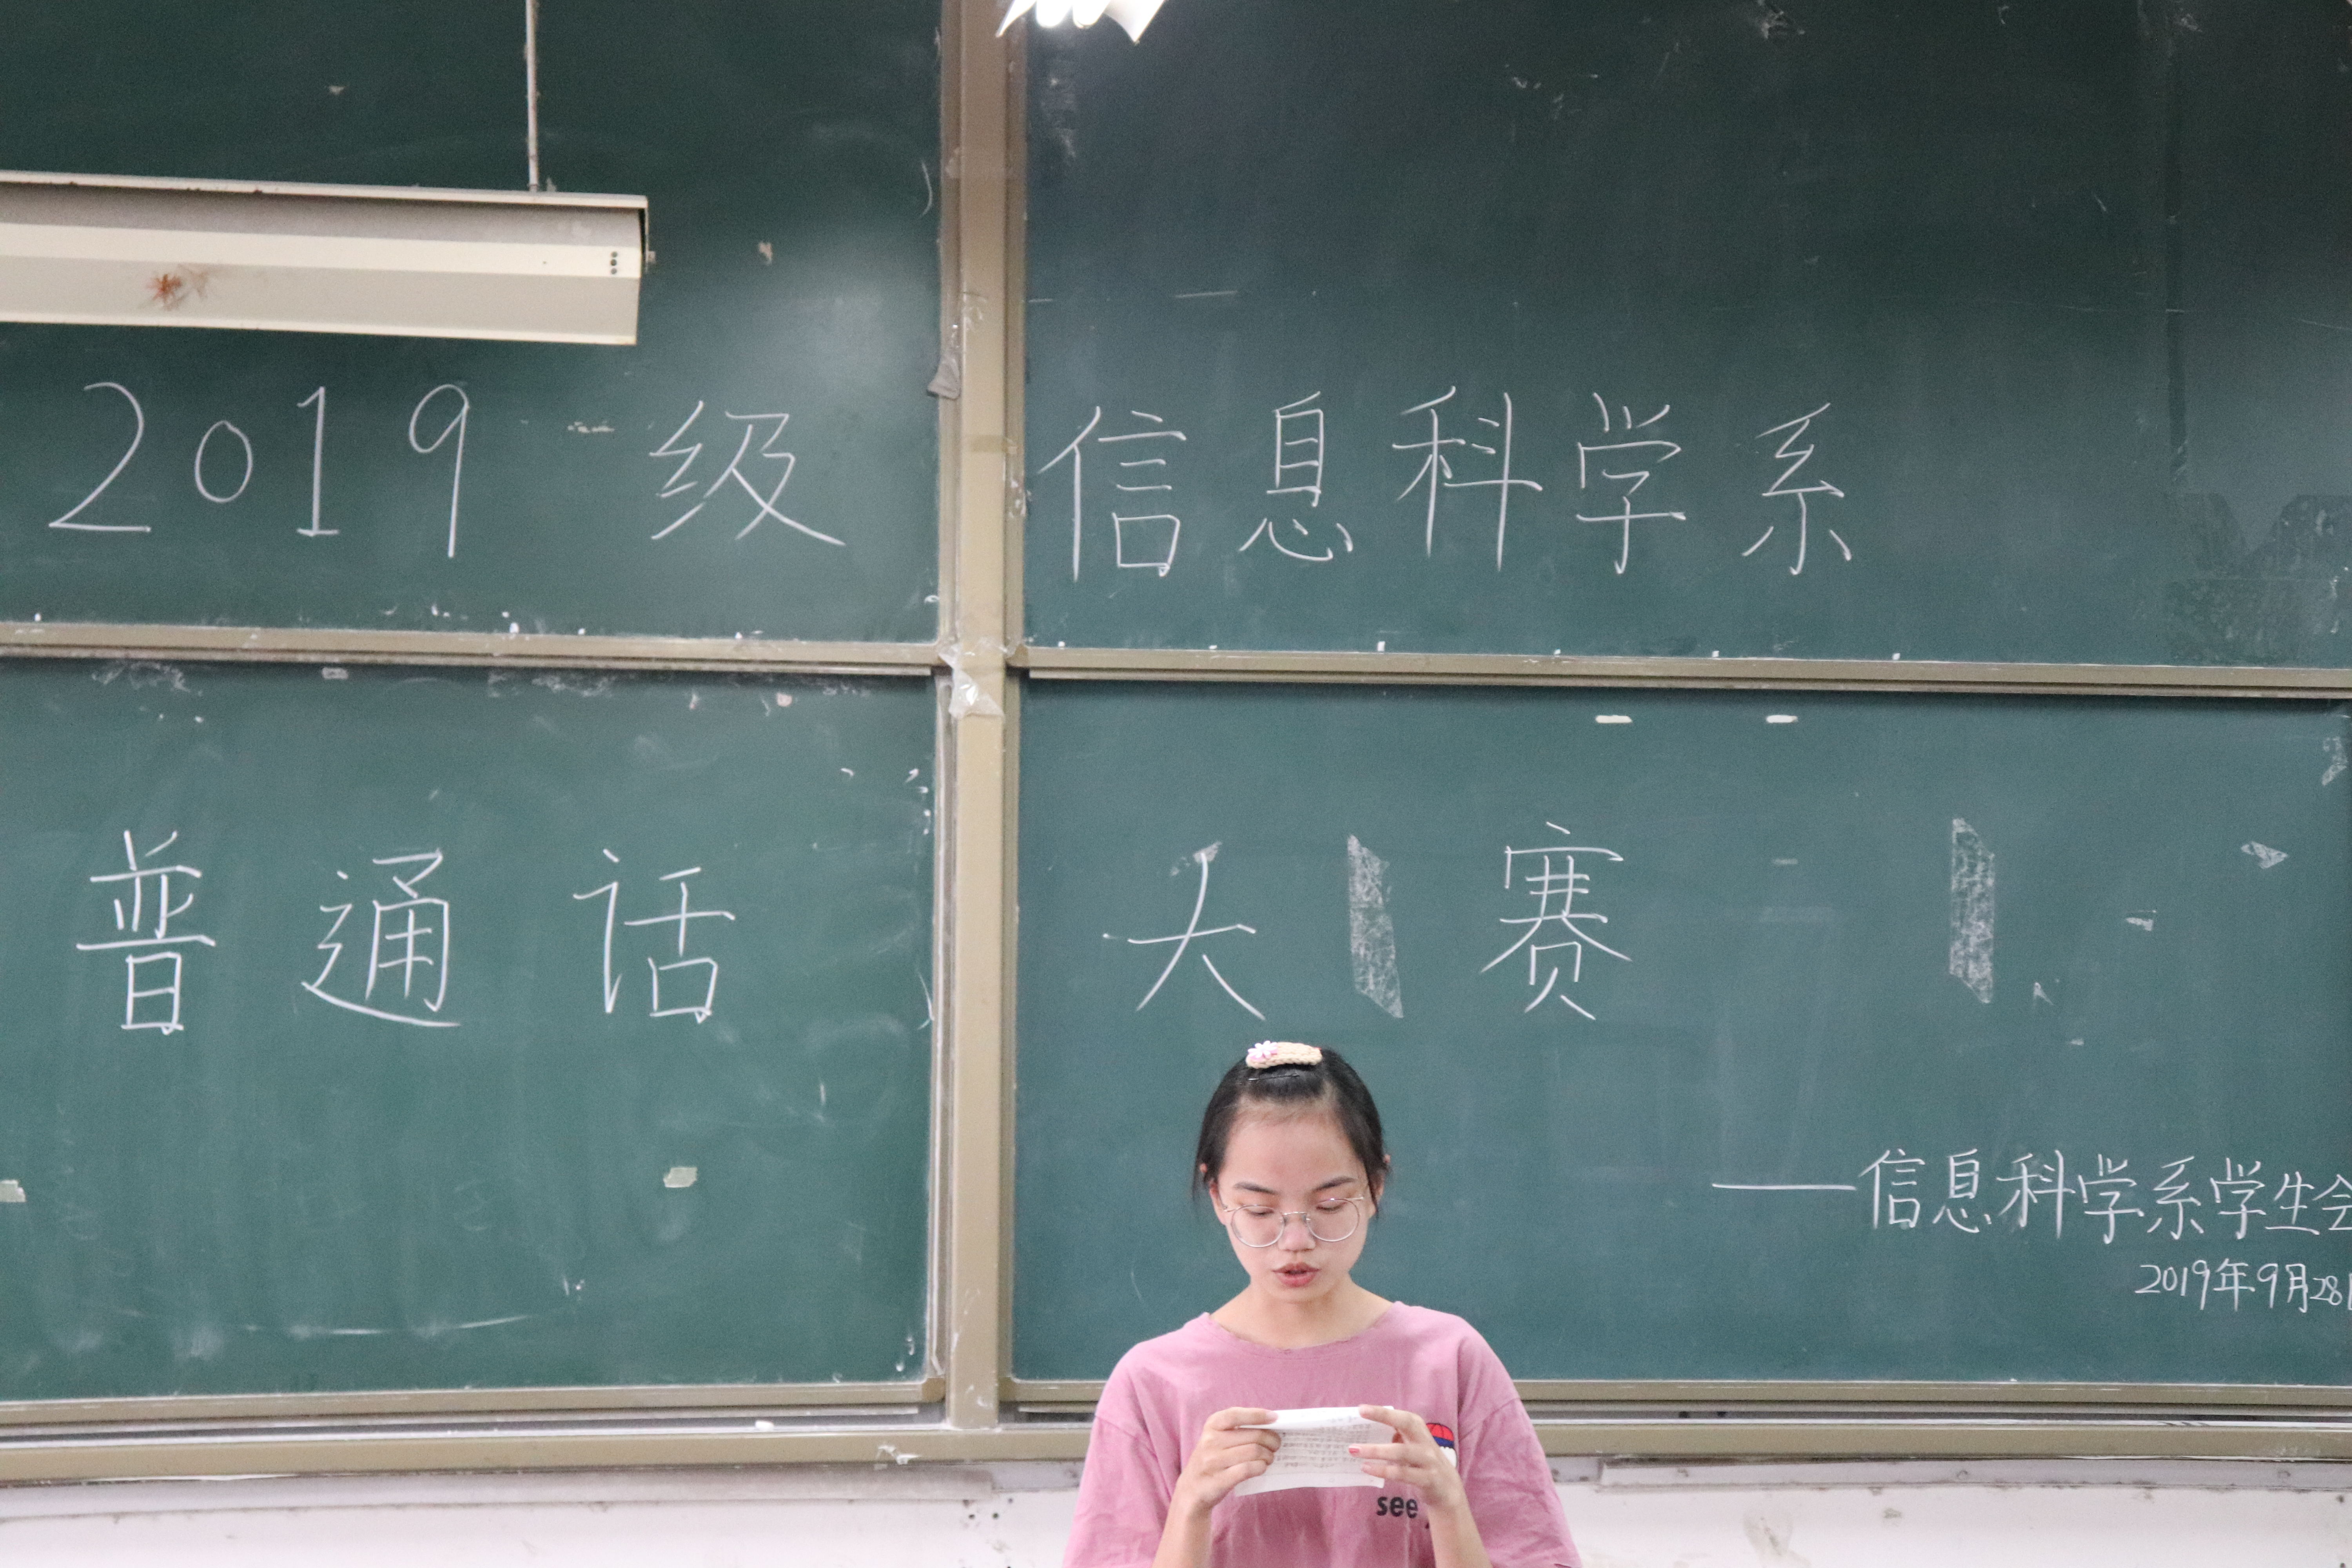 2019 级 信息科学系
普通话 大赛
——信息科学系学生会
2019年9月28日
see